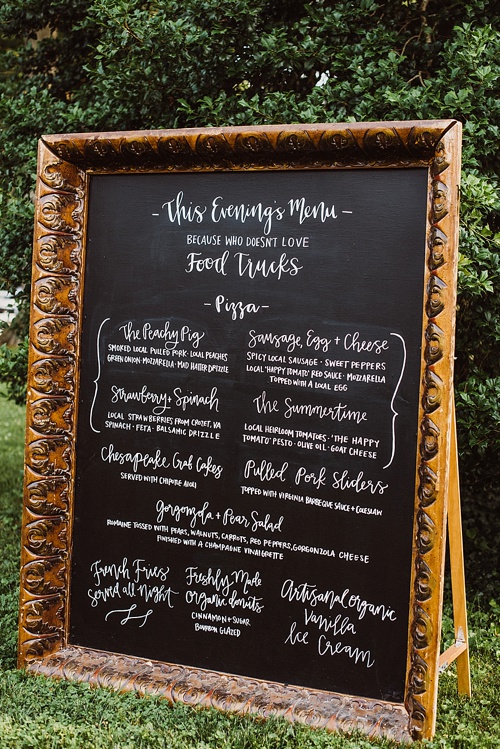 - This Evening's Menu -
BECAUSE WHO DOESN'T LOVE
Food Trucks
- Pizza -
The Peachy Pig
SMOKED LOCAL PULLED PORK · LOCAL PEACHES
GREEN ONION · MOZZARELLA · MAD HATTER DRIZZLE
Sausage, Egg + Cheese
SPICY LOCAL SAUSAGE · SWEET PEPPERS
LOCAL 'HAPPY TOMATO' RED SAUCE · MOZZARELLA
TOPPED WITH A LOCAL EGG
Strawberry + Spinach
LOCAL STRAWBERRIES FROM CROZET, VA
SPINACH · FETA · BALSAMIC DRIZZLE
The Summertime
LOCAL HEIRLOOM TOMATOES · 'THE HAPPY
TOMATO' PESTO · OLIVE OIL · GOAT CHEESE
Chesapeake Crab Cakes
SERVED WITH CHIPOTLE AIOLI
Pulled Pork Sliders
TOPPED WITH VIRGINIA BARBEQUE SAUCE + COLESLAW
Gorgonzola + Pear Salad
ROMAINE TOSSED WITH PEARS, WALNUTS, CARROTS, RED PEPPERS, GORGONZOLA CHEESE
FINISHED WITH A CHAMPAGNE VINAIGRETTE
French Fries
Served all Night
Freshly Made
Organic donuts
CINNAMON + SUGAR
BOURBON GLAZED
Artisanal organic
Vanilla
Ice Cream